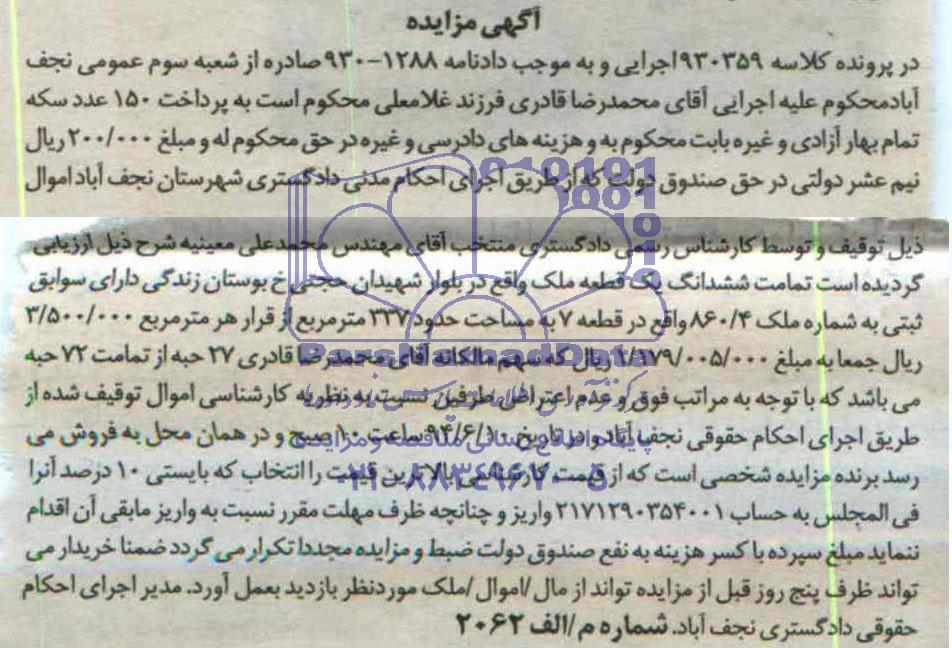 آگهی مزایده
در پرونده کلاسه ۹۳۰۳۵۹اجرایی و به موجب دادنامه ۱۲۸۸-۹۳۰ صادره از شعبه سوم عمومی نجف
آبادمحکوم علیه اجرایی آقای محمدرضا قادری فرزند غلامعلی محکوم است به پرداخت ۱۵۰ عدد سکه
تمام بهار آزادی و غیره بابت محکوم به و هزینه های دادرسی و غیره در حق محکوم له و مبلغ ۲۰۰/۰۰۰ ریال
نیم عشر دولتی در حق صندوق دولت که از طریق اجرای احکام مدنی دادگستری شهرستان نجف آباد اموال
ذیل توقیف و توسط کارشناس رسمی دادگستری منتخب آقای مهندس محمدعلی معینیه شرح ذیل ارزیابی
گردیده است تمامت ششدانگ یک قطعه ملک واقع در بلوار شهیدان حجتی خ بوستان زندگی دارای سوابق
ثبتی به شماره ملک ۸۶۰/۴ واقع در قطعه ۷ به مساحت حدود ۳۳۷ مترمربع از قرار هر مترمربع ۳/۵۰۰/۰۰۰
ریال جمعا به مبلغ ۱/۱۷۹/۰۰۵/۰۰۰ ریال که سهم مالکانه آقای محمدرضا قادری ۲۷ حبه از تمامت ۷۲ حبه
می باشد که با توجه به مراتب فوق و عدم اعتراض طرفین نسبت به نظریه کارشناسی اموال توقیف شده از
طریق اجرای احکام حقوقی نجف آباد و در تاریخ ۹۴/۶/۱۰ ساعت ۱۰ صبح و در همان محل به فروش می
رسد برنده مزایده شخصی است که از قیمت کارشناسی بالاترین قیمت را انتخاب که بایستی ۱۰ درصد آنرا
فی المجلس به حساب ۲۱۷۱۲۹۰۳۵۴۰۰۱ واریز و چنانچه ظرف مهلت مقرر نسبت به واریز مابقی آن اقدام
ننماید مبلغ سپرده با کسر هزینه به نفع صندوق دولت ضبط و مزایده مجددا تکرار می گردد ضمنا خریدار می
تواند ظرف پنج روز قبل از مزایده تواند از مال/اموال/ملک موردنظر بازدید بعمل آورد. مدیر اجرای احکام
حقوقی دادگستری نجف آباد. شماره م/الف ۲۰۶۲
ParsNamadData
پایگاه اطلاع رسانی مناقصه و مزایده
۰۲۱-۸۸۳۴۹۶۷۰-۵